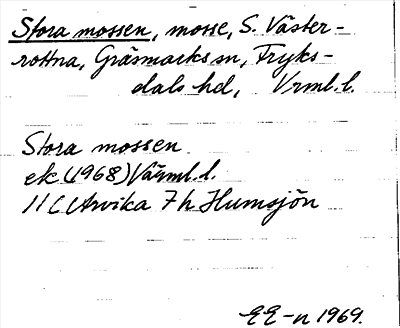 Stora mossen, mosse, S. Väster-
rottna, Gräsmarks sn, Fryks-
dals hd, Vrml. l.
Stora mossen
ek (1968) Värml. l.
11C Arvika 7h Humsjön
EE-n 1969.